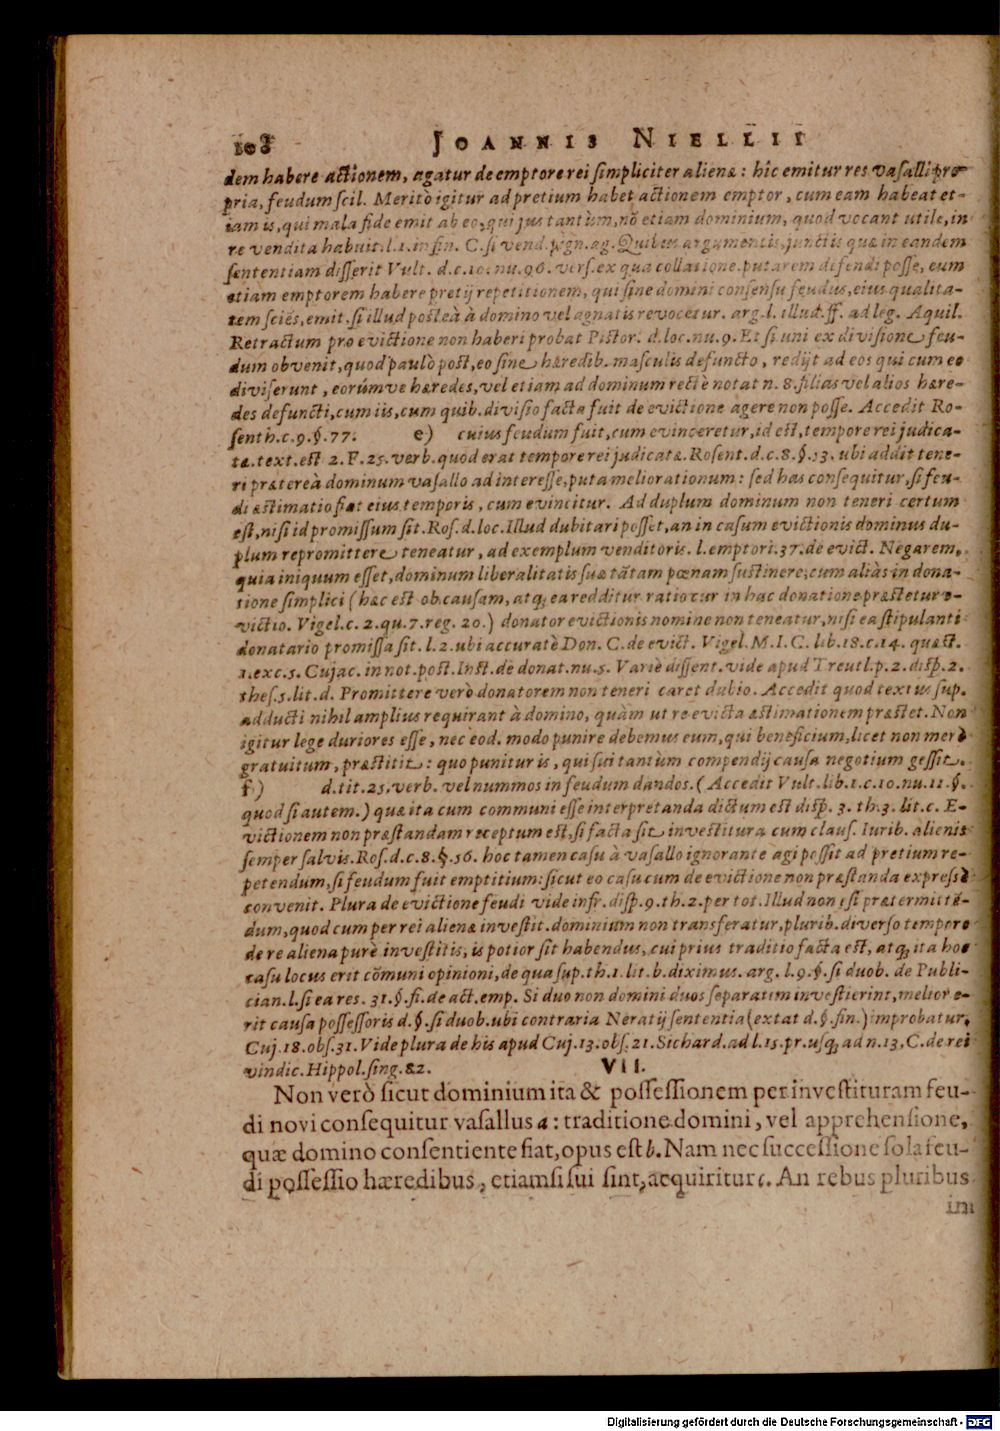 108 JOANNIS NIELLII
dem habere actionem, agatur de emptore rei simpliciter alienæ: hîc emitur res vasalli pro-
pria, feudum scil. Meritò igitur ad pretium habet actionem emptor, cum eam habeat et-
iam is, qui mala fide emit ab eo, qui jus tantùm, nõ etiam dominium, quod vocant utile, in
re vendita habuit. l. 1. in fin. C. si vend. pign. ag. Quibus argumentis, junctis quæ in eandem
sententiam disserit Vult. d. c. 10. nu. 96. vers. ex qua collatione. putarem defendi posse, eum
etiam emptorem habere pretij repetitionem, qui sine domini consensu feudus, eius qualita-
tem sciẽs, emit. si illud posteà à domino vel agnatis revocetur. arg. l. illud. ff. ad leg. Aquil.
Retractum pro evictione non haberi probat Pistor. d. loc. nu. 9. Et si uni ex divisione feu-
dum obvenit, quod paulò post, eo sine hæredib. masculis defuncto, redijt ad eos qui cum eo
diviserunt, eorúmve hæredes, vel etiam ad dominum rectè notat n. 8. filias vel alios hære-
des defuncti, cum iis, cum quib. divisio facta fuit de evictione agere non posse. Accedit Ro-
senth. c. 9. §. 77. e) cuius feudum fuit, cum evinceretur, id est, tempore rei judica-
tæ. text. est 2. F. 25. verb. quod erat tempore rei judicatæ. Rosent. d. c. 8. §. 13. ubi addit tene-
ri prætereà dominum vasallo ad interesse, puta meliorationum: sed has consequitur, si feu-
di æstimatio fiat eius temporis, cum evincitur. Ad duplum dominum non teneri certum
est, nisi id promissum sit. Ros. d. loc. Illud dubitari posset, an in casum evictionis dominus du-
plum repromittere teneatur, ad exemplum venditoris. l. emptori. 37. de evict. Negarem,
quia iniquum esset, dominum liberalitatis suæ tãtam pœnam sustinere, cum aliàs in dona-
tione simplici (hæc est ob causam, atq; ea redditur ratio cur in hac donatione præstetur e-
victio. Vigel. c. 2. qu. 7. reg. 20.) donator evictionis nomine non teneatur, nisi ea stipulanti
donatario promissa sit. l. 2. ubi accuratè Don. C. de evict. Vigel. M. I. C. lib. 18. c. 14. quæst.
1. exc. 5. Cujac. in not. post. Inst. de donat. nu. 5. Variè dissent. vide apud Treutl. p. 2. disp. 2.
thes. 5. lit. d. Promittere verò donatorem non teneri caret dubio. Accedit quod textus sup.
adducti nihil amplius requirant à domino, quàm ut re evicta æstimationem præstet. Non
igitur lege duriores esse, nec eod. modo punire debemus eum, qui beneficium, licet non merè
gratuitum, præstitit: quo punitur is, qui sui tantùm compendij causa negotium gessit.
f) d. tit. 25. verb. vel nummos in feudum dandos. (Accedit Vult. lib. 1. c. 10. nu. 11. §.
quod si autem.) quæ ita cum communi esse interpretanda dictum est disp. 3. th. 3. lit. c. E-
victionem non præstandam receptum est, si facta sit investitura cum claus. Iurib. alienis
semper salvis. Ros. d. c. 8. §. 56. hoc tamen casu à vasallo ignorante agi possit ad pretium re-
petendum, si feudum fuit emptitium: sicut eo casu cum de evictione non præstanda expressè
convenit. Plura de evictione feudi vide infr. disp. 9. th. 2. per tot. Illud non est prætermittẽ-
dum, quod cum per rei alienæ investit. dominium non transferatur, plurib. diverso tempore
de re aliena purè investitis, is potior sit habendus, cui prius traditio facta est, atq; ita hoc
casu locus erit cõmuni opinioni, de qua sup. th. 1. lit. b. diximus. arg. l. 9. §. si duob. de Publi-
cian. l. si ea res. 31. §. fi. de act. emp. Si duo non domini duos separatim investierint, melior e-
rit causa possessoris d. §. si duob. ubi contraria Neratij sententia (extat d. §. fin.) improbatur.
Cuj. 18. obs. 31. Vide plura de his apud Cuj. 13. obs. 21. Sichard. ad l. 15. pr. usq; ad n. 13. C. de rei
vindic. Hippol. sing. 82. VII.
Non verò sicut dominium ita & possessionem per investituram feu-
di novi consequitur vasallus a: traditione domini, vel apprehensione,
quæ domino consentiente fiat, opus est b. Nam nec successione sola feu-
di possessio hæredibus, etiamsi sui sint, acquiritur c. An rebus pluribus
im
Digitalisierung gefördert durch die Deutsche Forschungsgemeinschaft - DFG